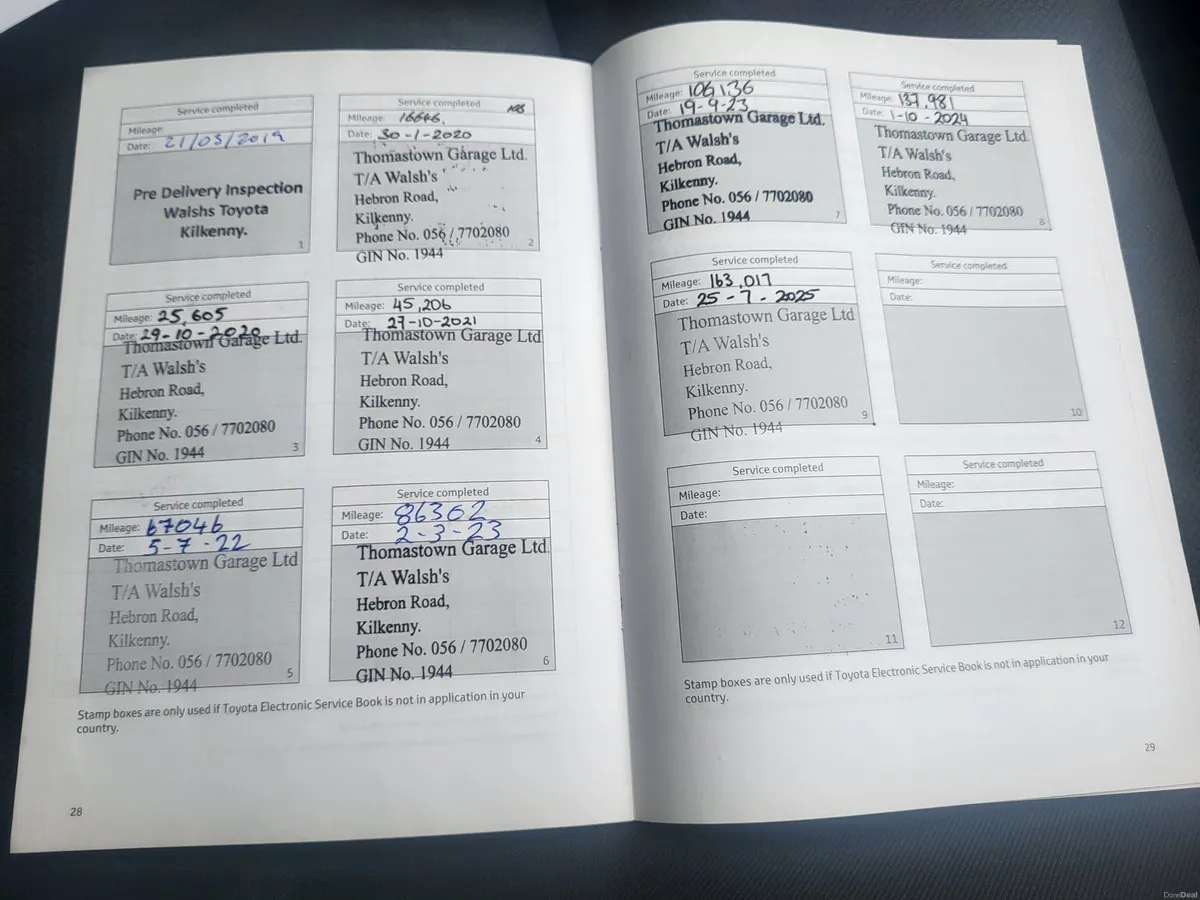 Service completed
Mileage:
Date: 21/03/2019
Pre Delivery Inspection
Walshs Toyota
Kilkenny.
1
Service completed
Mileage: 16646.
Date: 30-1-2020
Thomastown Garage Ltd.
T/A Walsh's
Hebron Road,
Kilkenny.
Phone No. 056 / 7702080
GIN No. 1944
2
Service completed
Mileage: 25,605
Date: 29-10-2020
Thomastown Garage Ltd.
T/A Walsh's
Hebron Road,
Kilkenny.
Phone No. 056 / 7702080
GIN No. 1944
3
Service completed
Mileage: 45,206
Date: 27-10-2021
Thomastown Garage Ltd
T/A Walsh's
Hebron Road,
Kilkenny.
Phone No. 056 / 7702080
GIN No. 1944
4
Service completed
Mileage: 67046
Date: 5-7-22
Thomastown Garage Ltd
T/A Walsh's
Hebron Road,
Kilkenny.
Phone No. 056 / 7702080
GIN No. 1944
5
Service completed
Mileage: 86302
Date: 2-3-23
Thomastown Garage Ltd.
T/A Walsh's
Hebron Road,
Kilkenny.
Phone No. 056 / 7702080
GIN No. 1944
6
Stamp boxes are only used if Toyota Electronic Service Book is not in application in your
country.
28
Service completed
Mileage: 106136
Date: 19-9-23
Thomastown Garage Ltd.
T/A Walsh's
Hebron Road,
Kilkenny.
Phone No. 056 / 7702080
GIN No. 1944
7
Service completed
Mileage: 137,981
Date: 1-10-2024
Thomastown Garage Ltd.
T/A Walsh's
Hebron Road,
Kilkenny.
Phone No. 056 / 7702080
GIN No. 1944
8
Service completed
Mileage: 163,017
Date: 25-7-2025
Thomastown Garage Ltd
T/A Walsh's
Hebron Road,
Kilkenny.
Phone No. 056 / 7702080
GIN No. 1944
9
Service completed
Mileage:
Date:
10
Service completed
Mileage:
Date:
11
Service completed
Mileage:
Date:
12
Stamp boxes are only used if Toyota Electronic Service Book is not in application in your
country.
29
DoneDeal